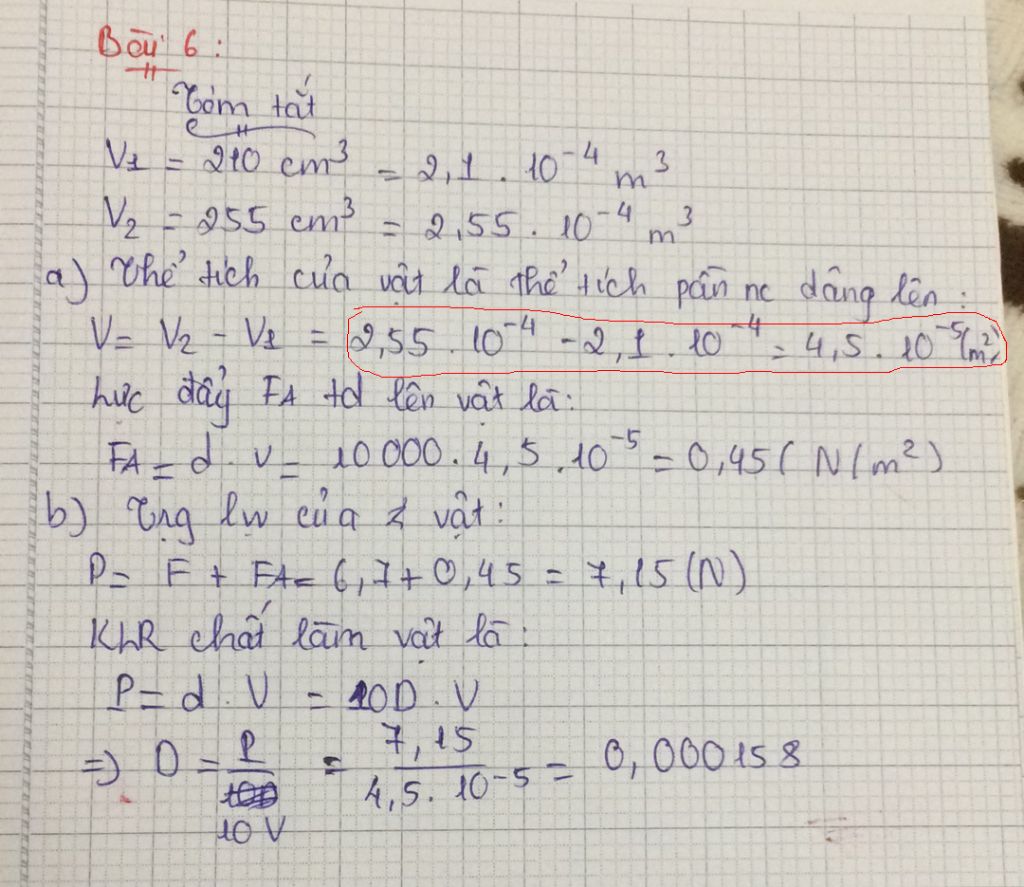 Bài 6:
Tóm tắt
V1 = 210 cm³ = 2,1 . 10⁻⁴ m³
V2 = 255 cm³ = 2,55 . 10⁻⁴ m³
a) Thể tích của vật là thể tích pần nc dâng lên:
V = V2 - V1 = 2,55 . 10⁻⁴ - 2,1 . 10⁻⁴ = 4,5 . 10⁻⁵ (m²)
Lực đẩy FA td lên vật là:
FA = d . V = 10 000 . 4,5 . 10⁻⁵ = 0,45 ( N/m²)
b) Tṇg lự của vật:
P = F + FA = 6,7 + 0,45 = 7,15 (N)
KLR chất làm vật là:
P = d . V = 10D . V
=> D = P / 10 V = 7,15 / 4,5 . 10⁻⁵ = 0,000158